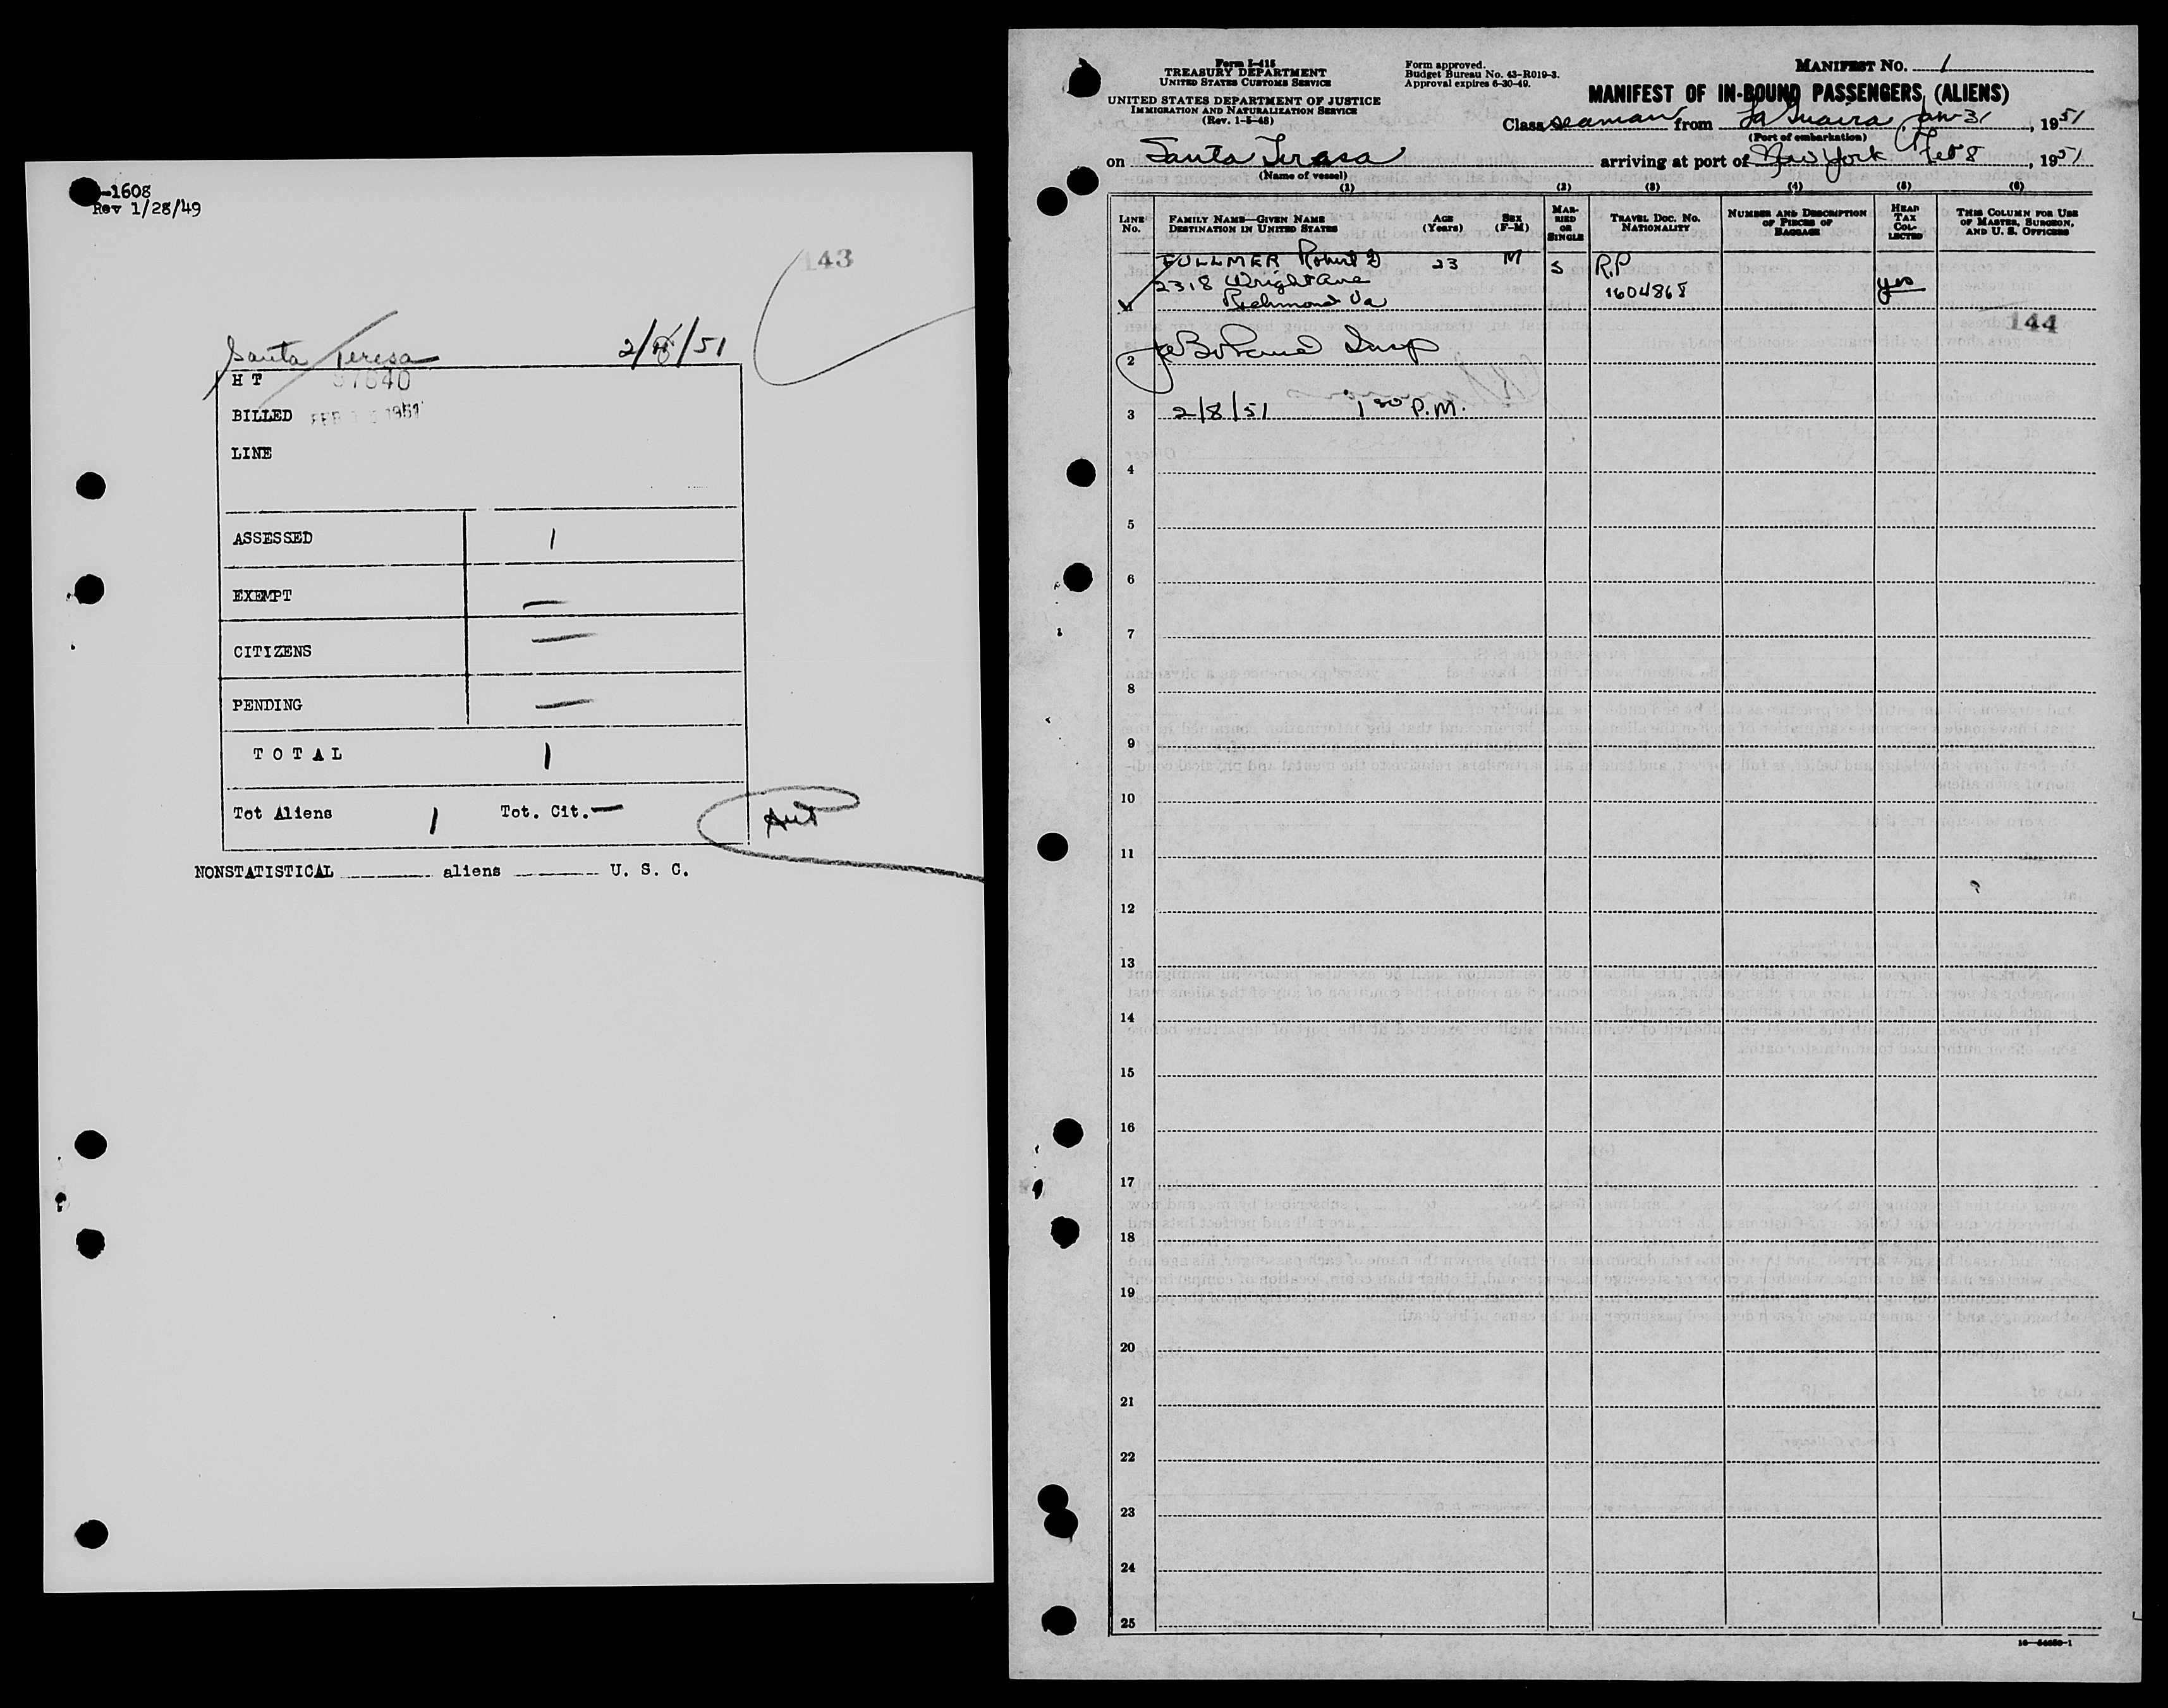 -1608
Rev 1/28/49
143
Santa Teresa 2/8/51
H T 97640
BILLED FEB 1951
LINE
ASSESSED 1
EXEMPT —
CITIZENS —
PENDING —
T O T A L 1
Tot Aliens 1 Tot. Cit. —
NONSTATISTICAL aliens U. S. C.
Form I-415
TREASURY DEPARTMENT
UNITED STATES CUSTOMS SERVICE
UNITED STATES DEPARTMENT OF JUSTICE
IMMIGRATION AND NATURALIZATION SERVICE
(Rev. 1-5-48)
Form approved.
Budget Bureau No. 43-R019-3.
Approval expires 6-30-49.
MANIFEST NO. 1
MANIFEST OF IN-BOUND PASSENGERS (ALIENS)
Class seaman from La Guaira, Jan 31, 1951
(Port of embarkation)
on Santa Teresa arriving at port of New York Feb 8, 1951
(Name of vessel)
(1) (2) (3) (4) (5) (6)
LINE No.
FAMILY NAME—GIVEN NAME
DESTINATION IN UNITED STATES
AGE (Years)
SEX (F-M)
MARRIED OR SINGLE
TRAVEL DOC. NO.
NATIONALITY
NUMBER AND DESCRIPTION OF PIECES OF BAGGAGE
HEAD TAX COLLECTED
THIS COLUMN FOR USE OF MASTER, SURGEON, AND U. S. OFFICERS
FULLMER Robert D 23 M S R.P
2318 Wright Ave 1604868 yes
Richmond Va
144
2 Insp
3 2/8/51 1 30 P.M.
4
5
6
7
8
9
10
11
12
13
14
15
16
17
18
19
20
21
22
23
24
25